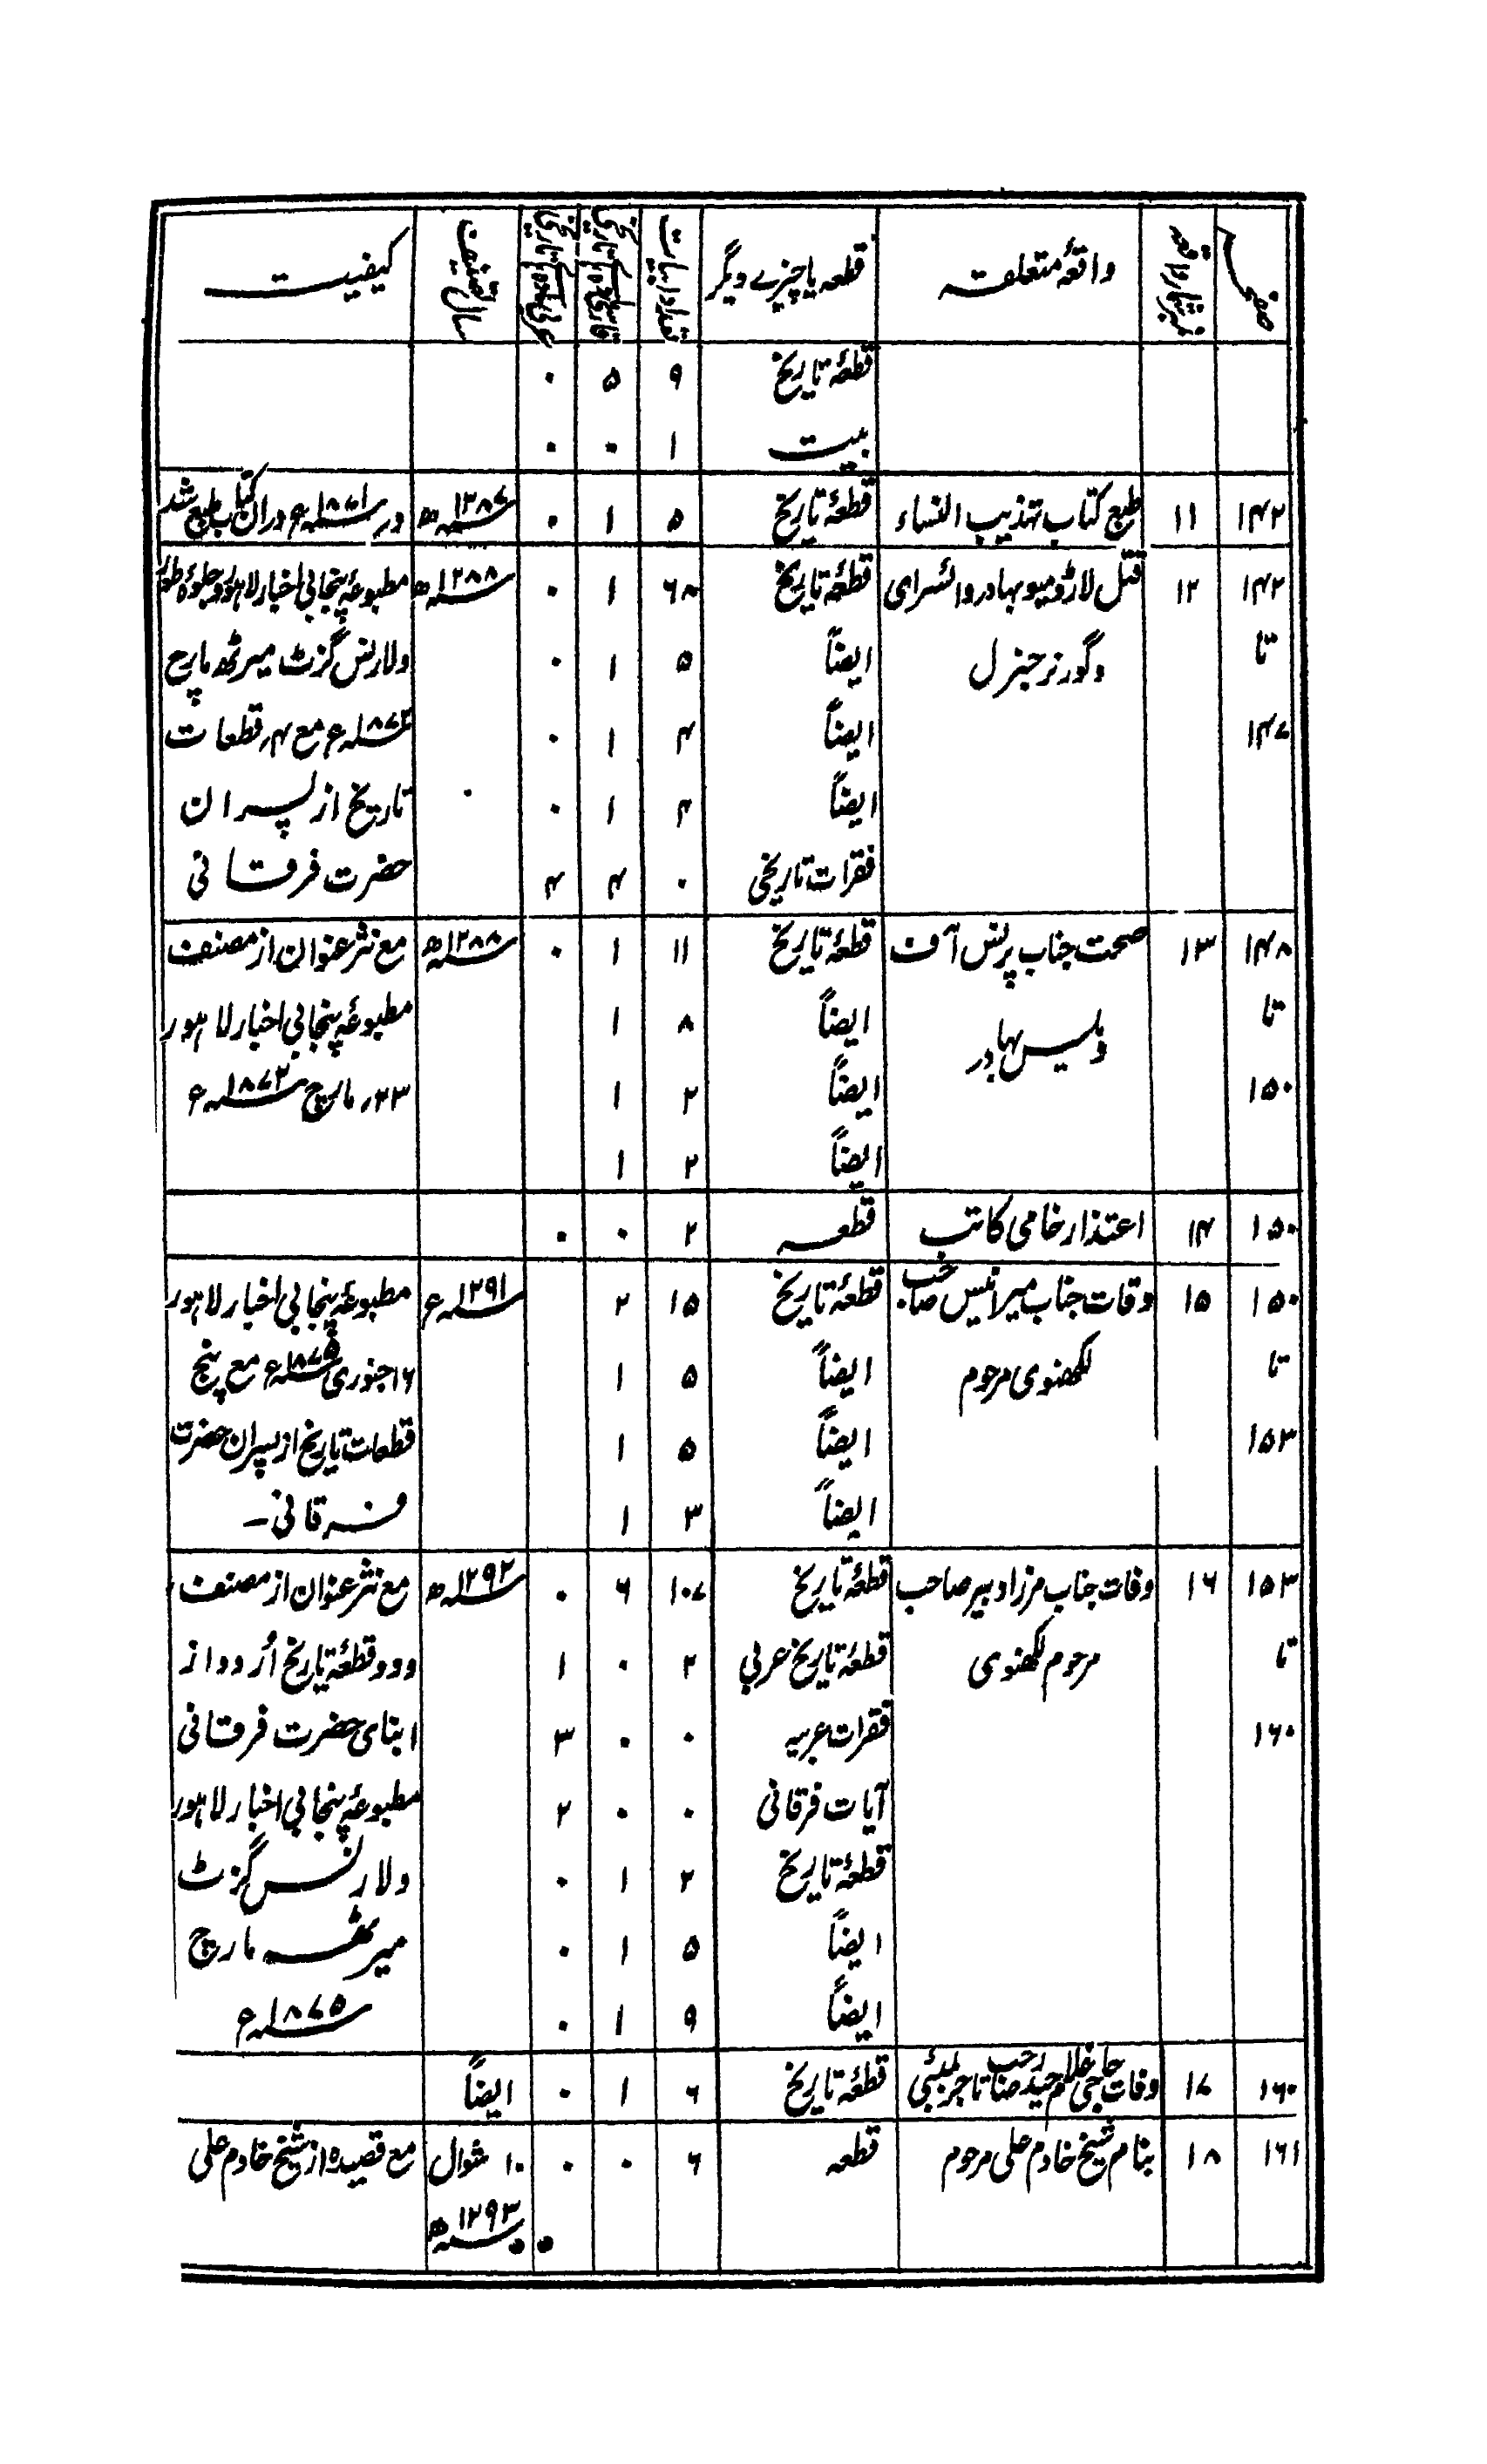 صفحہ | نمبر شمار واقعہ | واقعۂ متعلقہ | قطعہ یا چیزے دیگر | تعداد ابیات | فارسی مادہ تاریخی | عربی مادہ تاریخی | سال تصنیف | کیفیت
قطعۂ تاریخ | ۹ | ۵ | ۰
بیت | ۱ | ۰ | ۰
۱۴۲ | ۱۱ | طبع کتاب تہذیب النساء | قطعۂ تاریخ | ۵ | ۱ | ۰ | ۱۲۸۷ھ | در ۱۸۷۱ء دران کتاب طبع شد
۱۴۲ | ۱۲ | قتل لارڈ میو بہادر وائسرای | قطعۂ تاریخ | ۶۸ | ۱ | ۰ | ۱۲۸۸ھ | مطبوعۂ پنجابی اخبار لاہور و جلوۂ طور
تا | وگورنر جنرل | ایضاً | ۵ | ۱ | ۰ | ولارنس گزٹ میرٹھ مارچ
۱۴۷ | ایضاً | ۴ | ۱ | ۰ | ۱۸۷۲ء مع ۴ر قطعات
ایضاً | ۴ | ۱ | ۰ | ۰ | تاریخ از پسران
فقرات تاریخی | ۰ | ۴ | ۴ | حضرت فرقانی
۱۴۸ | ۱۳ | صحت جناب پرنس آف | قطعۂ تاریخ | ۱۱ | ۱ | ۰ | ۱۲۸۸ھ | مع نثر عنوان از مصنف
تا | ویلیس بہادر | ایضاً | ۸ | ۱ | مطبوعۂ پنجابی اخبار لاہور
۱۵۰ | ایضاً | ۲ | ۱ | ۲۳ر مارچ ۱۸۷۲ء
ایضاً | ۲ | ۱
۱۵۰ | ۱۴ | اعتذار خامی کاتب | قطعہ | ۲ | ۰ | ۰
۱۵۰ | ۱۵ | وفات جناب میر انیس صاحب | قطعۂ تاریخ | ۱۵ | ۲ | ۱۲۹۱ء | مطبوعۂ پنجابی اخبار لاہور
تا | لکھنوی مرحوم | ایضاً | ۵ | ۱ | ۱۶ جنوری ۱۸۷۵ء مع پنج
۱۵۳ | ایضاً | ۵ | ۱ | قطعات تاریخ از پسران حضرت
ایضاً | ۳ | ۱ | فرقانی ـ
۱۵۳ | ۱۶ | وفات جناب مرزا دبیر صاحب | قطعۂ تاریخ | ۱۰۷ | ۶ | ۰ | ۱۲۹۲ھ | مع نثر عنوان از مصنف
تا | مرحوم لکھنوی | قطعۂ تاریخ عربی | ۲ | ۰ | ۱ | ودو قطعۂ تاریخ اُردو از
۱۶۰ | فقرات عربیہ | ۰ | ۰ | ۳ | ابنای حضرت فرقانی
آیات فرقانی | ۰ | ۰ | ۲ | مطبوعۂ پنجابی اخبار لاہور
قطعۂ تاریخ | ۲ | ۱ | ۰ | ولارنس گزٹ
ایضاً | ۵ | ۱ | ۰ | میرٹھ مارچ
ایضاً | ۹ | ۱ | ۰ | ۱۸۷۵ء
۱۶۰ | ۱۷ | وفات حاجی غلام حیدر صاحب تاجر بمبئی | قطعۂ تاریخ | ۶ | ۱ | ۰ | ایضاً
۱۶۱ | ۱۸ | بنام شیخ خادم علی مرحوم | قطعہ | ۶ | ۰ | ۰ | ۱۰ شوال | مع قصیدہ از شیخ خادم علی
۱۲۹۳ھ